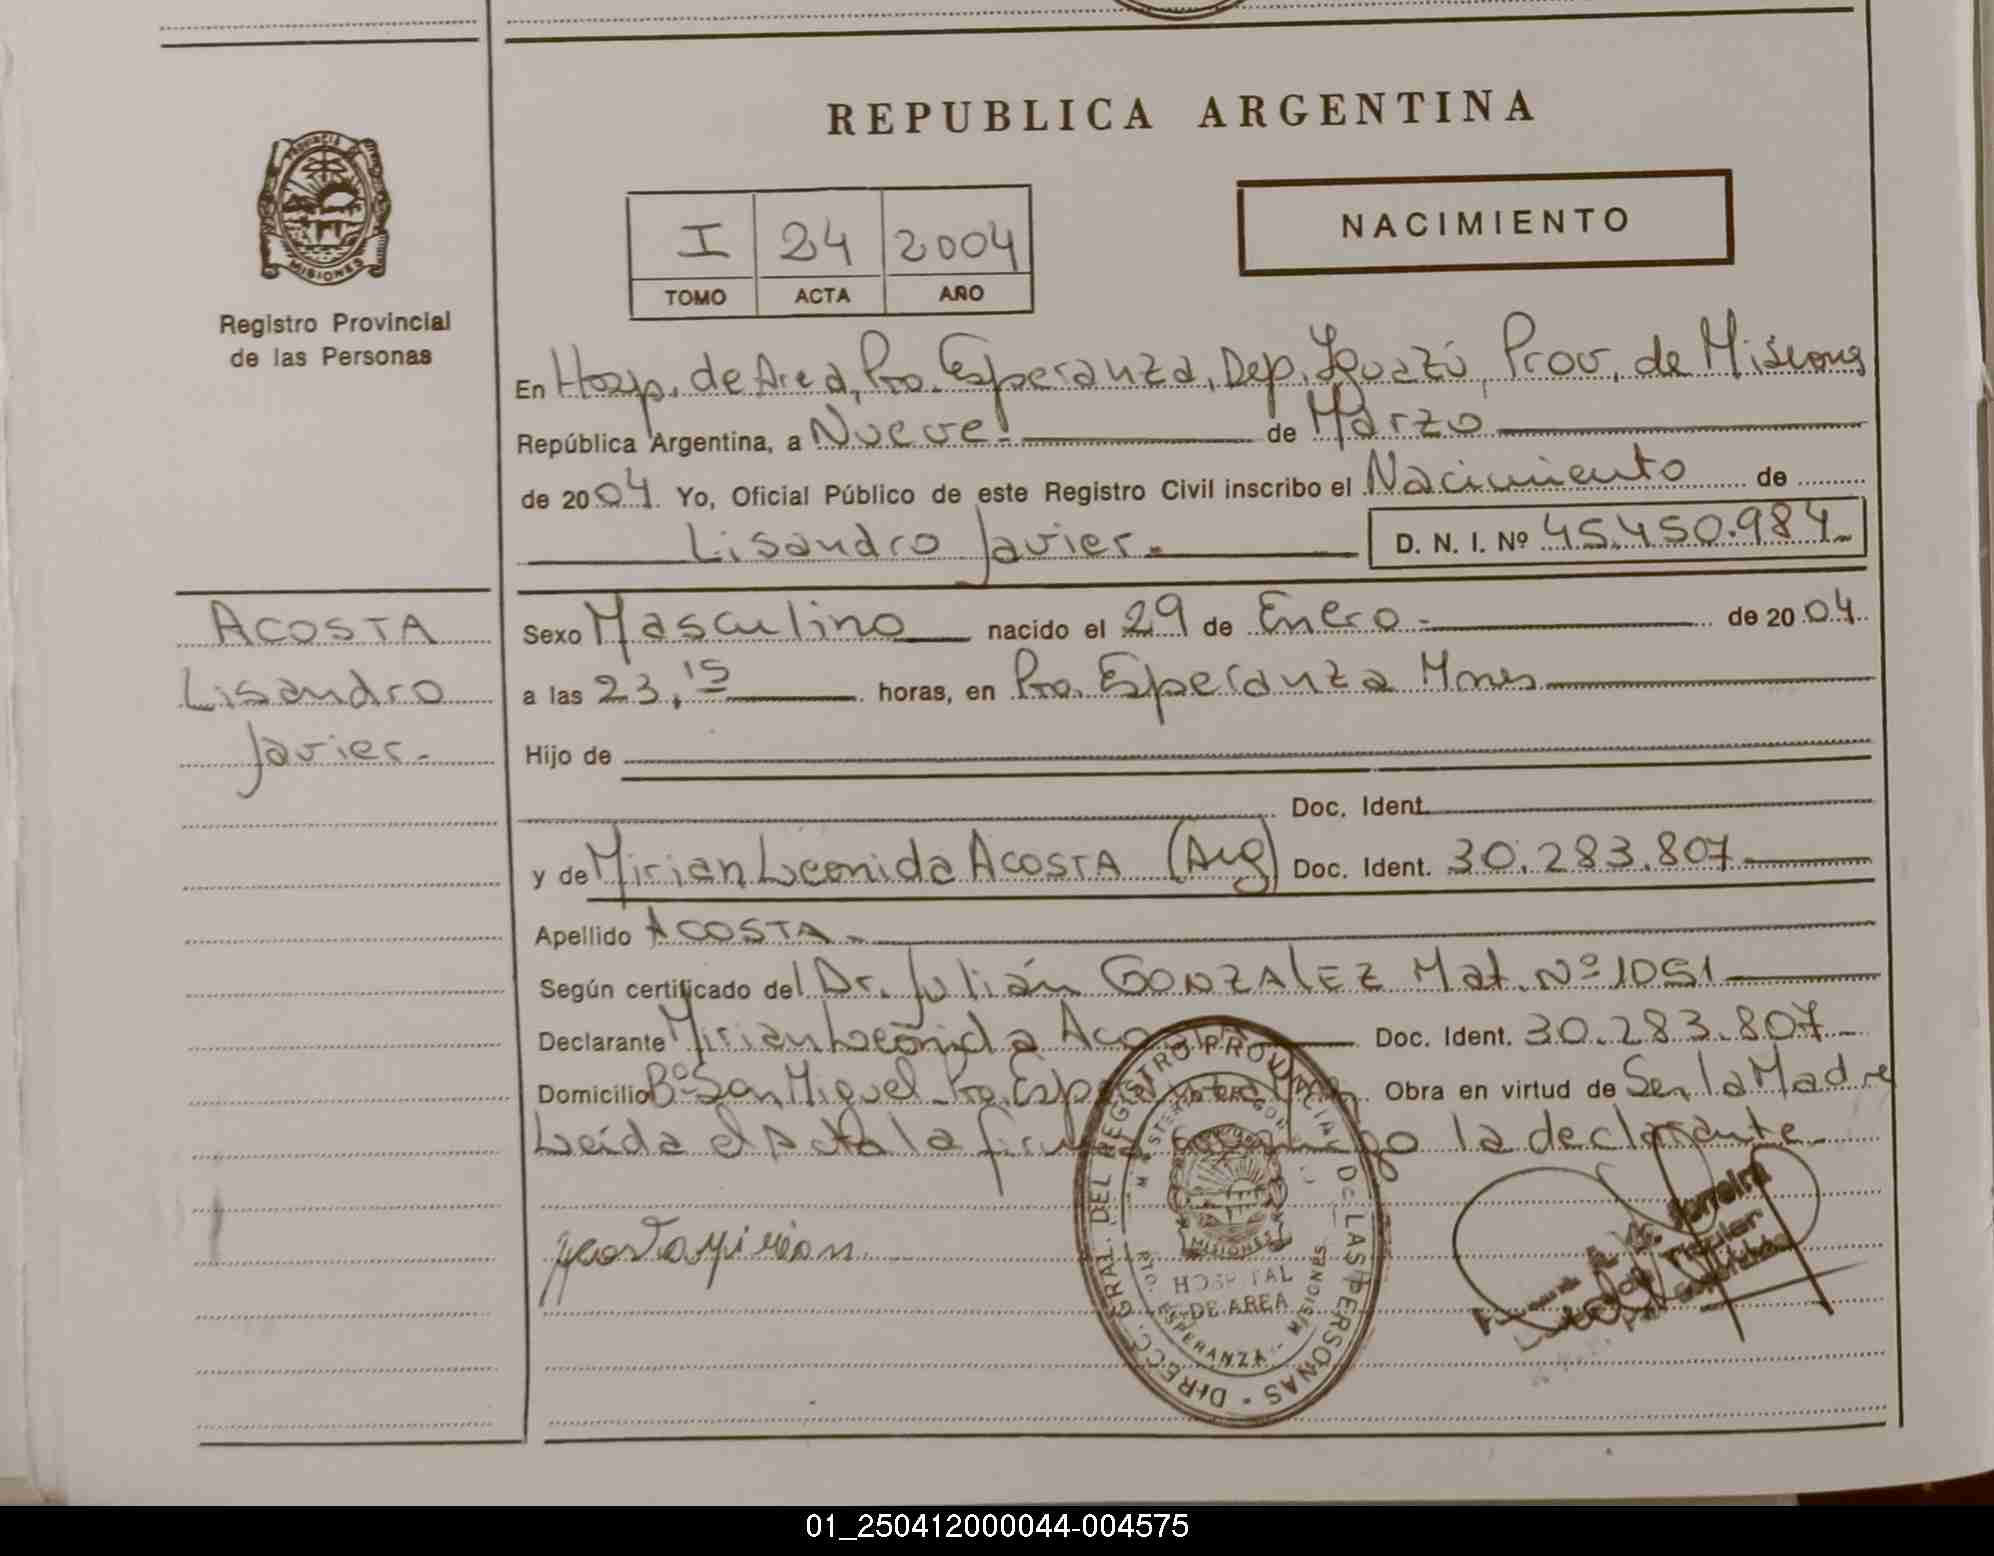 REPUBLICA ARGENTINA
PROVINCIA DE
MISIONES
Registro Provincial
de las Personas
I 24 2004
TOMO ACTA AÑO
NACIMIENTO
En Hosp. de Area, Pto. Esperanza, Dep. Iguazú, Prov. de Misiones
República Argentina, a Nueve.- de Marzo
de 2004. Yo, Oficial Público de este Registro Civil inscribo el Nacimiento de
Lisandro Javier.- D. N. I. Nº 45.450.984.-
ACOSTA
Lisandro
Javier.-
Sexo Masculino nacido el 29 de Enero.- de 2004.
a las 23,15 horas, en Pto. Esperanza Mnes
Hijo de
Doc. Ident.
y de Mirian Leonida ACOSTA (Arg) Doc. Ident. 30.283.807.-
Apellido ACOSTA.-
Según certificado del Dr. Julián GONZALEZ Mat. Nº 1051
Declarante Mirian Leonida Acosta Doc. Ident. 30.283.807.-
Domicilio Bº San Miguel Pto. Esperanza Obra en virtud de Ser la Madre
Leída el Acta la firma conmigo la declarante.-
Acosta mirian
DIRECC. GRAL. DEL REGISTRO PROVINCIAL DE LAS PERSONAS
MISIONES
HOSPITAL
DE AREA
ESPERANZA - MISIONES
Ferreira
Titular
01_250412000044-004575